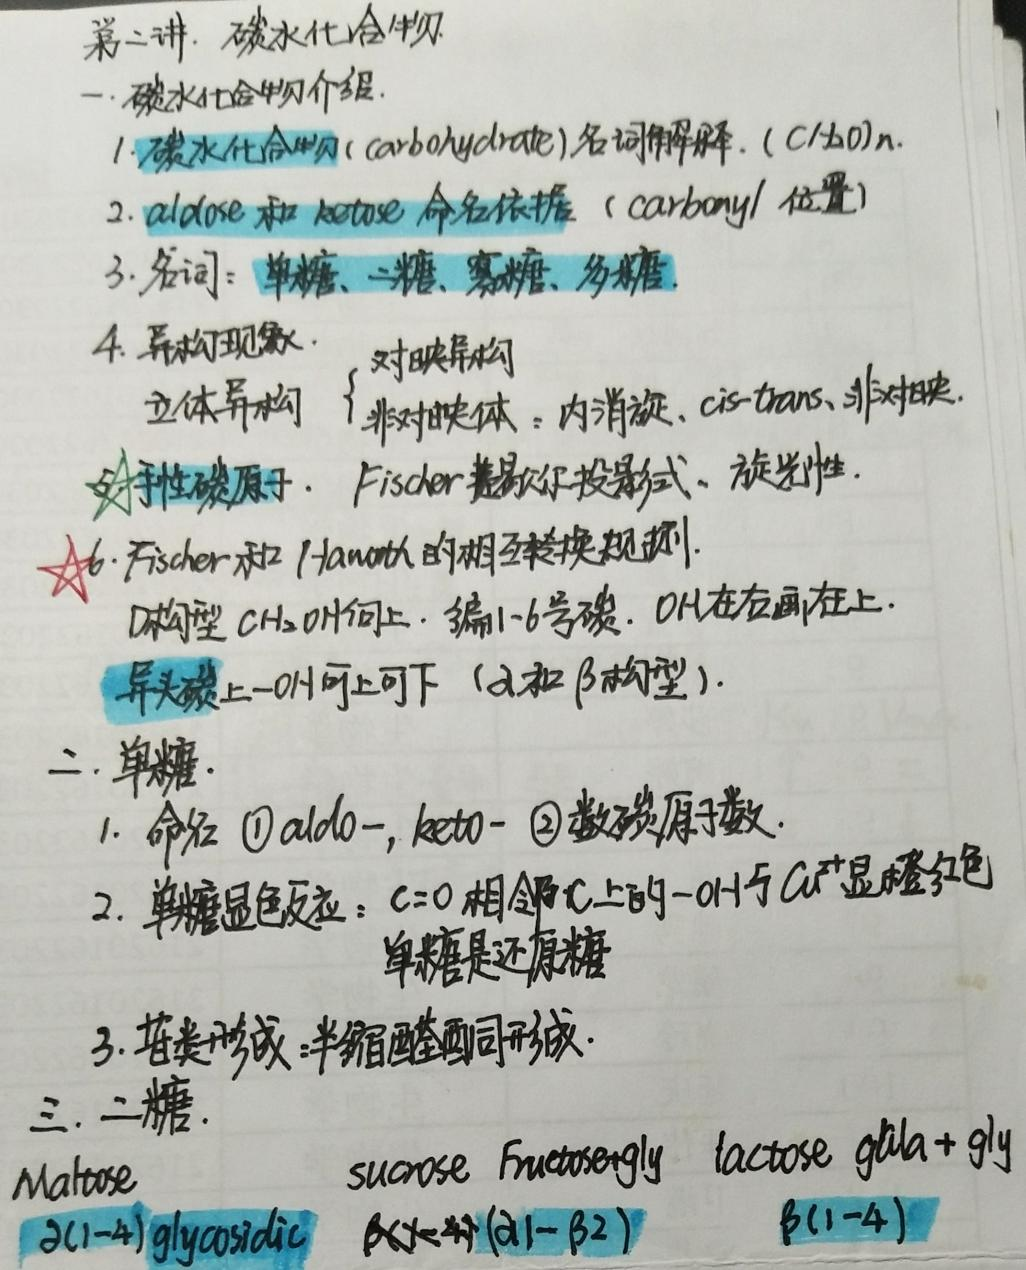 第二讲. 碳水化合物.
一. 碳水化合物介绍.
1. 碳水化合物(carbohydrate)名词解释. (CH2O)n.
2. aldose 和 ketose 命名依据 (carbonyl 位置)
3. 名词: 单糖、二糖、寡糖、多糖.
4. 异构现象.
立体异构 { 对映异构
非对映体: 内消旋、cis-trans、非对映.
☆5. 手性碳原子. Fischer 投影式、旋光性.
☆6. Fischer 和 Haworth 的相互转换规则.
D构型 CH2OH向上. 编1-6号碳. OH在右画在上.
异头碳上-OH可上可下 (α和β构型).
二. 单糖.
1. 命名 ①aldo-, keto- ②数碳原子数.
2. 单糖显色反应: C=O 相邻C上的-OH与 Cu2+显橙红色
单糖是还原糖
3. 苷类形成:半缩醛酮形成.
三. 二糖.
Maltose sucrose Fructose+gly lactose gala + gly
α(1-4) glycosidic (α1-β2) β(1-4)